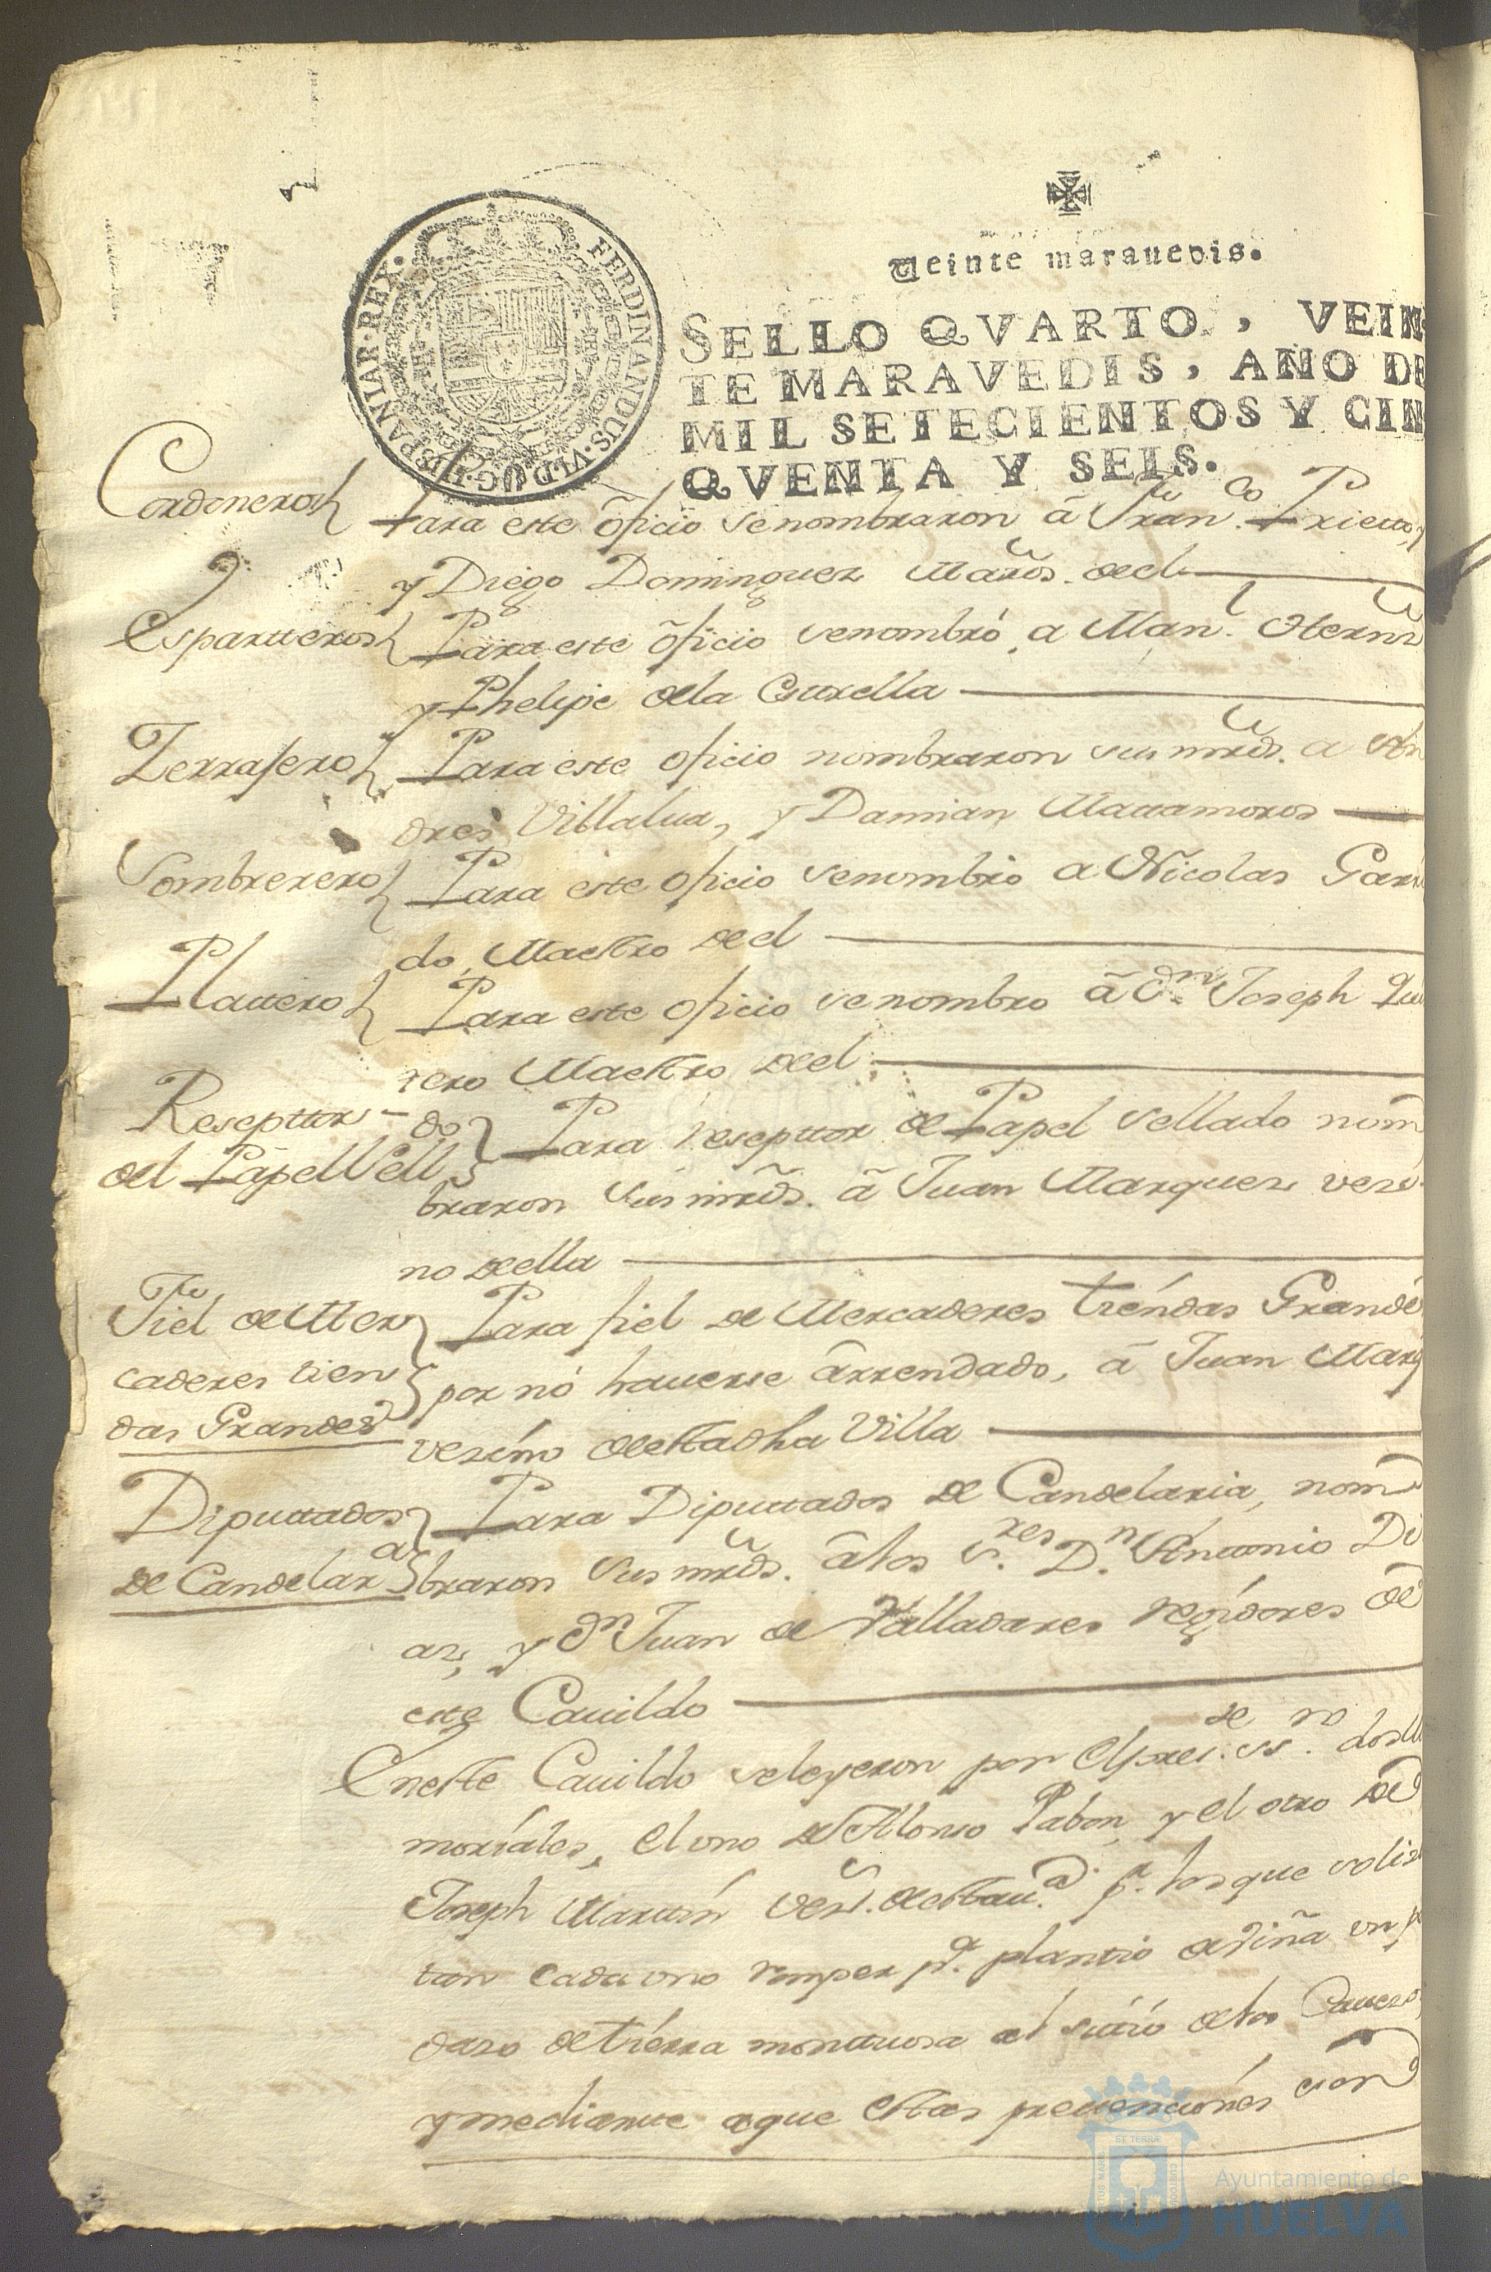 Veinte maravedis.
SELLO QVARTO, VEIN-
TE MARAVEDIS, AÑO DE
MIL SETECIENTOS Y CIN
QVENTA Y SEIS.
FERDINANDUS·VI·D·G·HISPANIAR·REX·
Cordoneros Para este õficio se nombraron â Fran.co Prietto, y
y Diego Dominguez Maros. de el
Esparteros Para este õficio se nombró a Man.l Hernz
y Phelipe de la Esttrella
Zerrajero Para este oficio nombraron sus mrds. a An
dres Villalva, y Damian Mattamoros
Sombrerero Para este oficio se nombro a Nicolas Garri
do, Maestro de el
Plattero Para este oficio se nombro â dn. Joseph Qui
tero Maestro de el
Reseptor del Papel Sell.do Para reseptor de Papel sellado nom
braron sus mrds. â Juan Marquez vezi
no de ella
Fiel de Mer Para fiel de Mercaderes tiendas Grandes
caderes tien por nó haverse arrendado, â Juan Marq
das Grandes vezino de esta dha Villa
Diputtados Para Diputtados de Candelaria, nom
de Candelar.a braron sus mrds. â los S.res D.n Antonio Di
az, y dn Juan de Valladares regidores de
este Cavildo
En este Cavildo se leyeron por el pres.te ss.no dos Me
moriales, el uno de Alonso Pabon, y el otro de
Joseph Martin vez.s de esta v.a p.r los que solizi
tan cada uno romper p.a plantio de viña un pe
dazo de tierra montuosa al sitio de los Cavezos,
y mediante a que estas prevenciónes
Ayuntamiento de
HUELVA